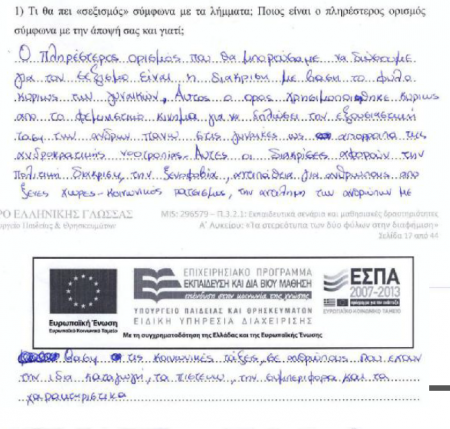 1) Τι θα πει «σεξισμός» σύμφωνα με τα λήμματα; Ποιος είναι ο πληρέστερος ορισμός
σύμφωνα με την άποψή σας και γιατί;
Ο πληρέστερος ορισμός που θα μπορούσαμε να δώσουμε
για τον σεξισμό είναι η διάκριση με βάση το φύλο
κυρίως των γυναικών. Αυτός ο όρος χρησιμοποιήθηκε κυρίως
από το φεμινιστικό κίνημα για να δηλώσει την εξουσιαστική
τάση των ανδρων πανω στις γυναίκες ως απόρροια της
ανδροκρατικής νοοτροπίας. Αυτές οι διακρίσεις αφορούν την
διάκριση, την ξενοφοβία, αντιπάθεια για ανθρώπους από
ξένες χώρες - κοινωνικός ρατσισμός, την των ανθρώπων με
ΡΟ ΕΛΛΗΝΙΚΗΣ ΓΛΩΣΣΑΣ
MIS: 296579 – Π.3.2.1: Εκπαιδευτικά σενάρια και μαθησιακές δραστηριότητες
υργείο Παιδείας & Θρησκευμάτων
Α΄ Λυκείου: «Τα στερεότυπα των δύο φύλων στην διαφήμιση»
Σελίδα 17 από 44
ΕΠΙΧΕΙΡΗΣΙΑΚΟ ΠΡΟΓΡΑΜΜΑ
ΕΚΠΑΙΔΕΥΣΗ ΚΑΙ ΔΙΑ ΒΙΟΥ ΜΑΘΗΣΗ
επένδυση στην κοινωνία της γνώσης
ΕΣΠΑ
2007-2013
Ευρωπαϊκή Ένωση
Ευρωπαϊκό Κοινωνικό Ταμείο
ΥΠΟΥΡΓΕΙΟ ΠΑΙΔΕΙΑΣ ΚΑΙ ΘΡΗΣΚΕΥΜΑΤΩΝ
ΕΙΔΙΚΗ ΥΠΗΡΕΣΙΑ ΔΙΑΧΕΙΡΙΣΗΣ
ΕΥΡΩΠΑΪΚΟ ΚΟΙΝΩΝΙΚΟ ΤΑΜΕΙΟ
Με τη συγχρηματοδότηση της Ελλάδας και της Ευρωπαϊκής Ένωσης
βαση τις κοινωνικές τάξεις, σε ανθρώπους που εχουν
την ιδια καταγωγή, τα πιστευω, την συμπεριφορα και τα
χαρακτηριστικα